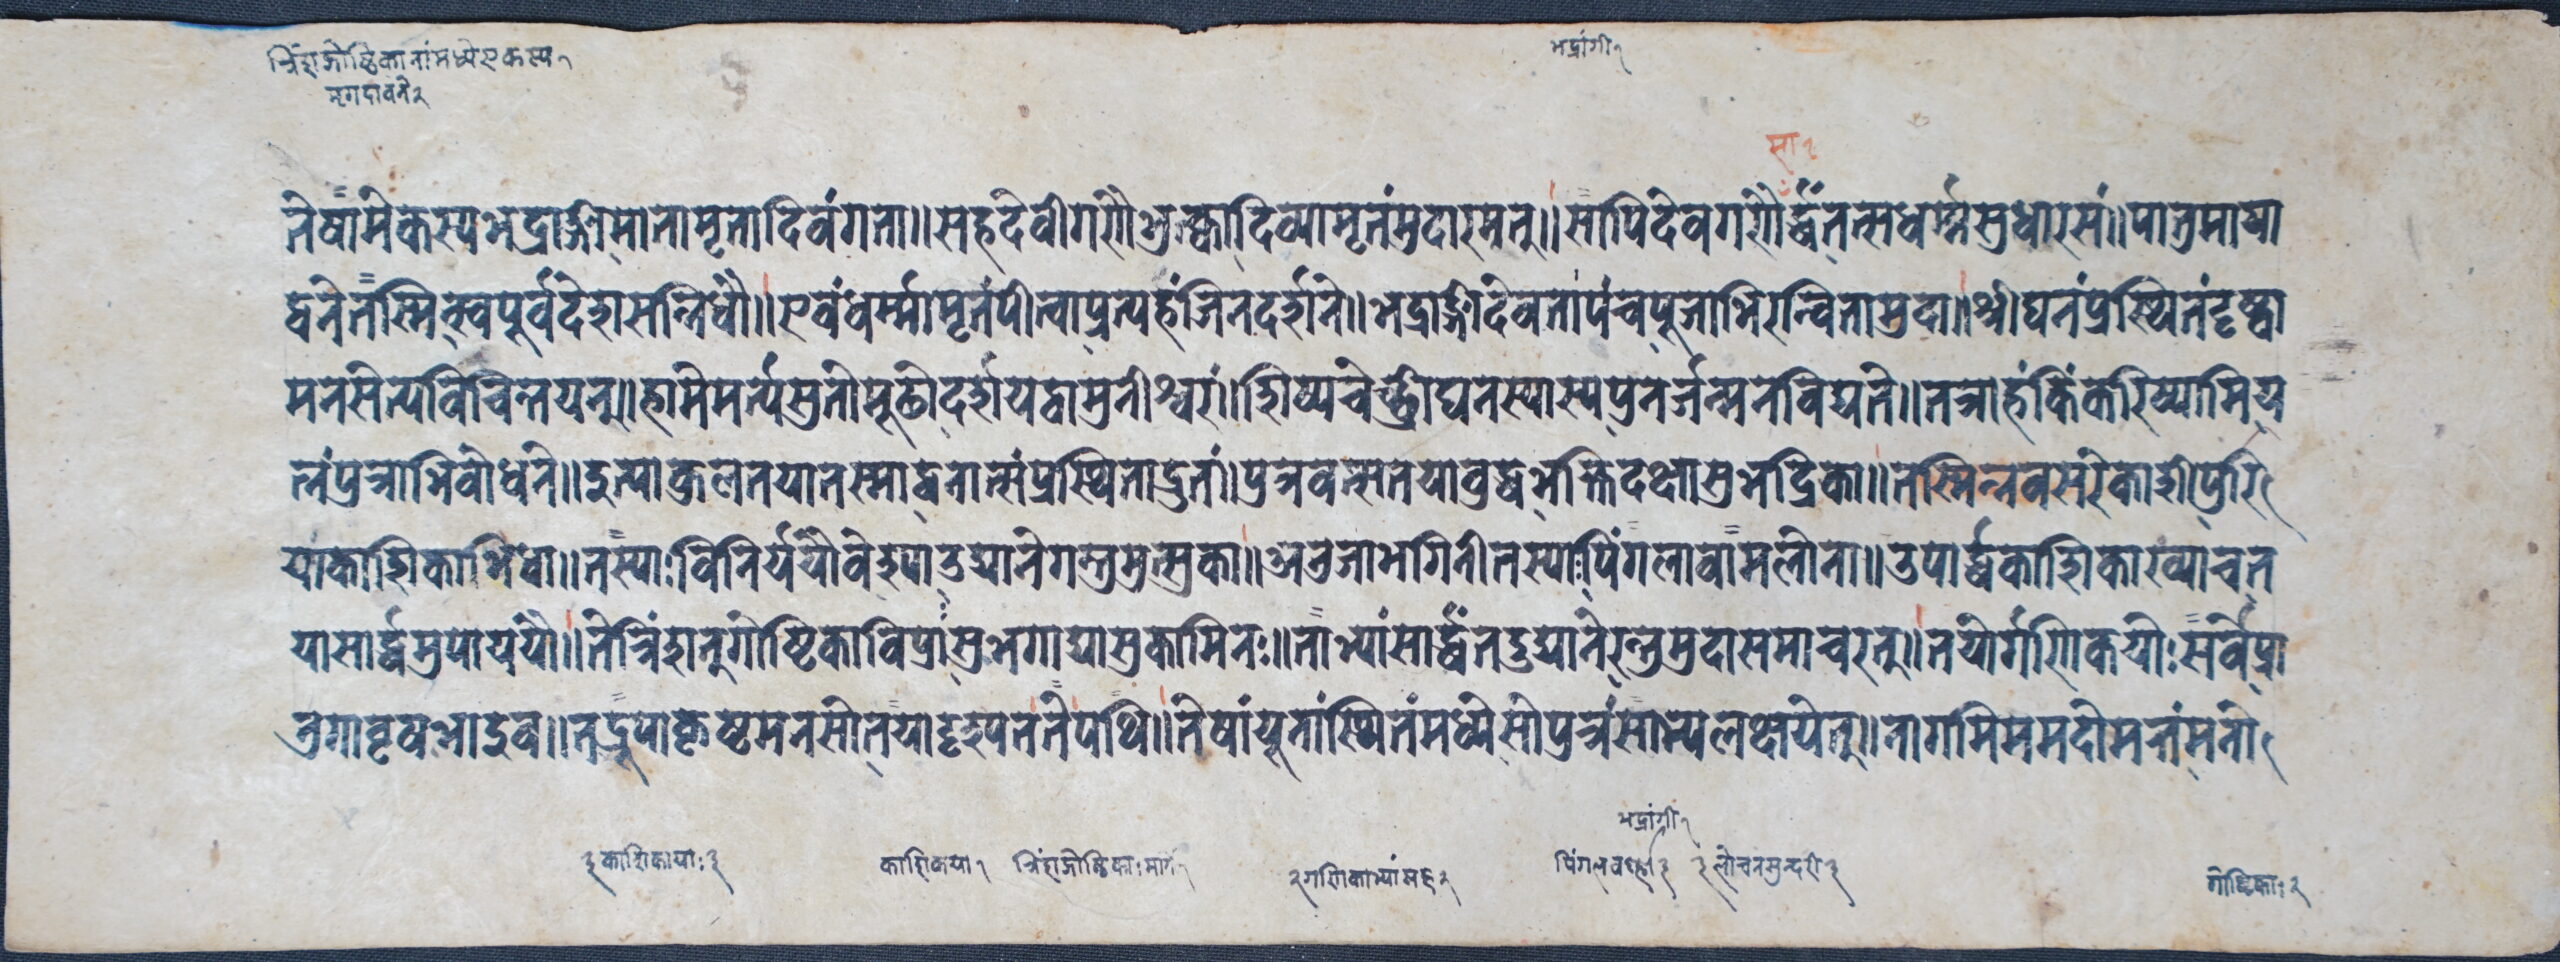 त्रिंशगौष्ठिकानांमध्येएकस्य १
मृगदावने २
भद्रांगी १
सा १
तेषामेकस्यभद्राङ्गीमातामृतादिवंगता॥सहदेवीगणैर्भुक्त्वादिव्यामृतंमुदारमत्॥सापिदेवगणैर्द्धंतत्सधर्म्मसुधारसं॥पातुमाया
द्वनेतस्मिन्स्वपूर्वदेशसन्निधौ॥एवंधर्म्मामृतंपीत्वाप्रत्यहंजिनदर्शने॥भद्राङ्गीदेवतापंचपूजाभिरन्वितामुदा॥श्रीघनंप्रस्थितंदृष्ट्वा
मनसेत्यविचिन्तयत्॥हामेमर्त्यसुतोमूढोदर्शयेद्वामुनीश्वरं॥शिष्यचेच्छ्रीघनस्यास्यपुनर्जन्मनविद्यते॥तत्राहंकिंकरिष्यामिय
त्नंपुत्राभिबोधने॥इत्याकुलतयातस्माद्वनात्संप्रस्थिताद्रुतं॥पुत्रवत्सतयाबुद्धभक्तिदक्षासुभद्रिका॥तस्मिन्नवसरेकाशीपुरि
याकाशिकाभिधा॥तस्याःविनिर्ययौवेश्याउद्यानेगन्तुमुत्सुका॥अनुजाभगिनीतस्याःपिंगलावामलोना॥उपार्द्धकाशिकाख्याचत
यासार्द्धमुपाययौ॥तेत्रिंशत्गोष्टिकाविप्राःसुभगाद्यासुकामिनः॥ताभ्यांसार्द्धंतदुद्यानेरन्तुमुदासमाचरत्॥तयोर्गणिकयोःसर्वेप्रा
नुगावृषभाइव॥तद्रूपाकृष्टमनसोतयादृश्यन्ततेपथि॥तेषांयूतांस्थितंमध्येसोपुत्रंसाभ्यलक्षयेत्॥नागमिममदोमत्तंमनी
३ काशिकायाः ३
काशिकया १
त्रिंशगौष्ठिकाःमार्गे १
२ गणिकाभ्यांसह २
भद्रांगी १
पिंगलवर्ण्णा २
३ लोचनसुन्दरी २
गोष्टिकाः २